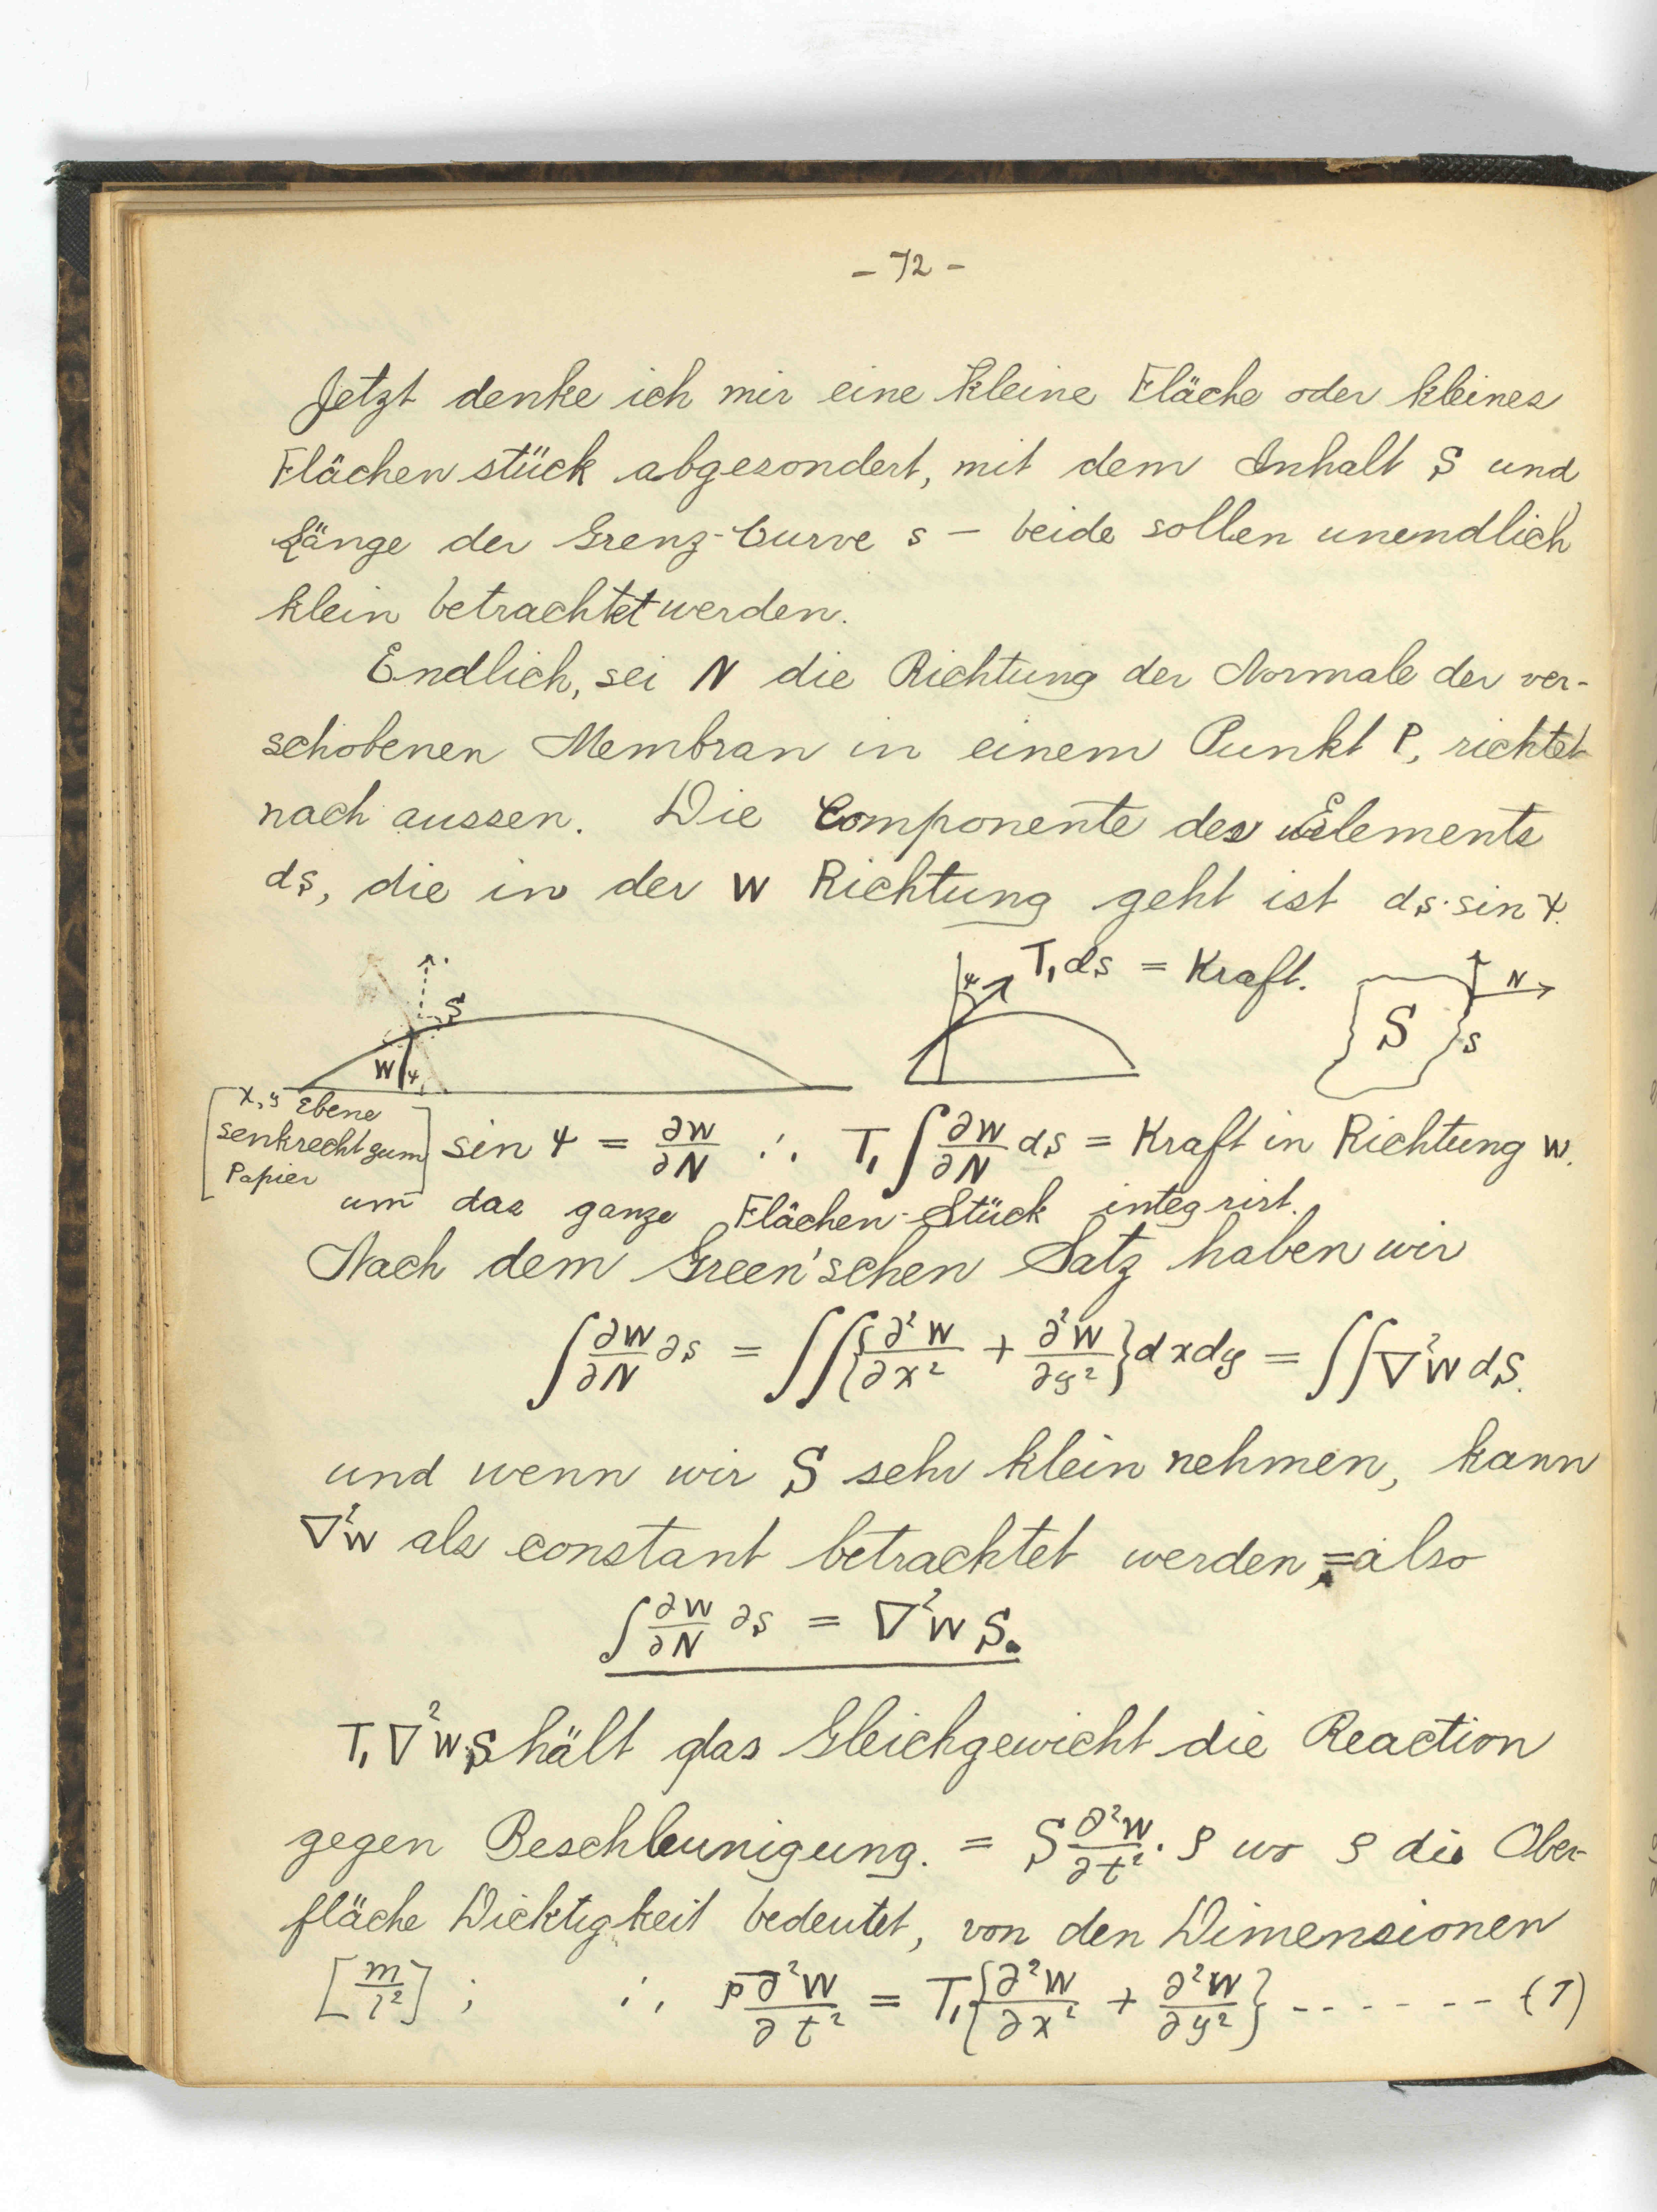 - 72 -
Jetzt denke ich mir eine kleine Fläche oder kleines
Flächenstück abgesondert, mit dem Inhalt S und
Länge der Grenz-Curve s — beide sollen unendlich
klein betrachtet werden.
Endlich, sei N die Richtung der Normale der ver-
schobenen Membran in einem Punkt P, richtet
nach aussen. Die Componente des Elements
ds, die in der W Richtung geht ist ds·sin ψ.
S
W ψ
ψ T₁ds = Kraft.
S s N
[x, y Ebene
senkrecht zum
Papier]
sin ψ = ∂W/∂N ∴ T₁∫∂W/∂N ds = Kraft in Richtung W.
um das ganze Flächen-Stück integrirt.
Nach dem Green'schen Satz haben wir
∫∂W/∂N ∂s = ∬{∂²W/∂x² + ∂²W/∂y²}dxdy = ∬∇²W dS.
und wenn wir S sehr klein nehmen, kann
∇²W als constant betrachtet werden, = also
∫∂W/∂N ∂s = ∇²W S.
T₁∇²W·S hält das Gleichgewicht die Reaction
gegen Beschleunigung. = S ∂²W/∂t² · ρ wo ρ die Ober-
fläche Dicktigkeit bedeutet, von den Dimensionen
[m/l²]; ∴ ρ ∂²W/∂t² = T₁{∂²W/∂x² + ∂²W/∂y²} - - - - - - - (1)